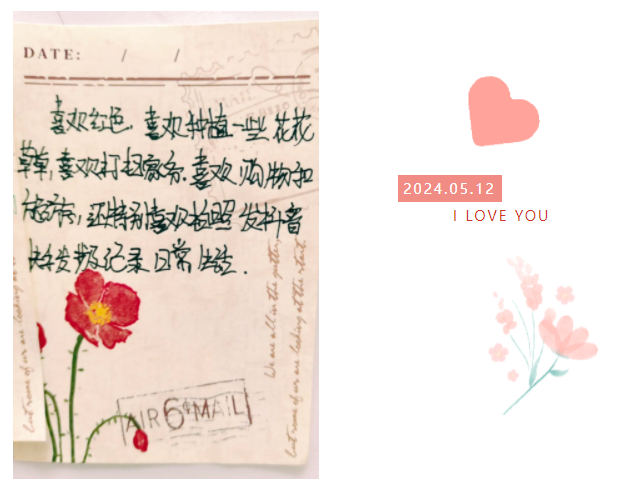 DATE: / /
喜欢红色,喜欢种植一些花花
草草,喜欢打扫家务.喜欢购物和
旅游,还特别喜欢拍照发抖音
发朋友记录日常生活.
We are all in the gutter,
but some of us are looking at the stars
AIR 6¢ MAIL
2024.05.12
I LOVE YOU